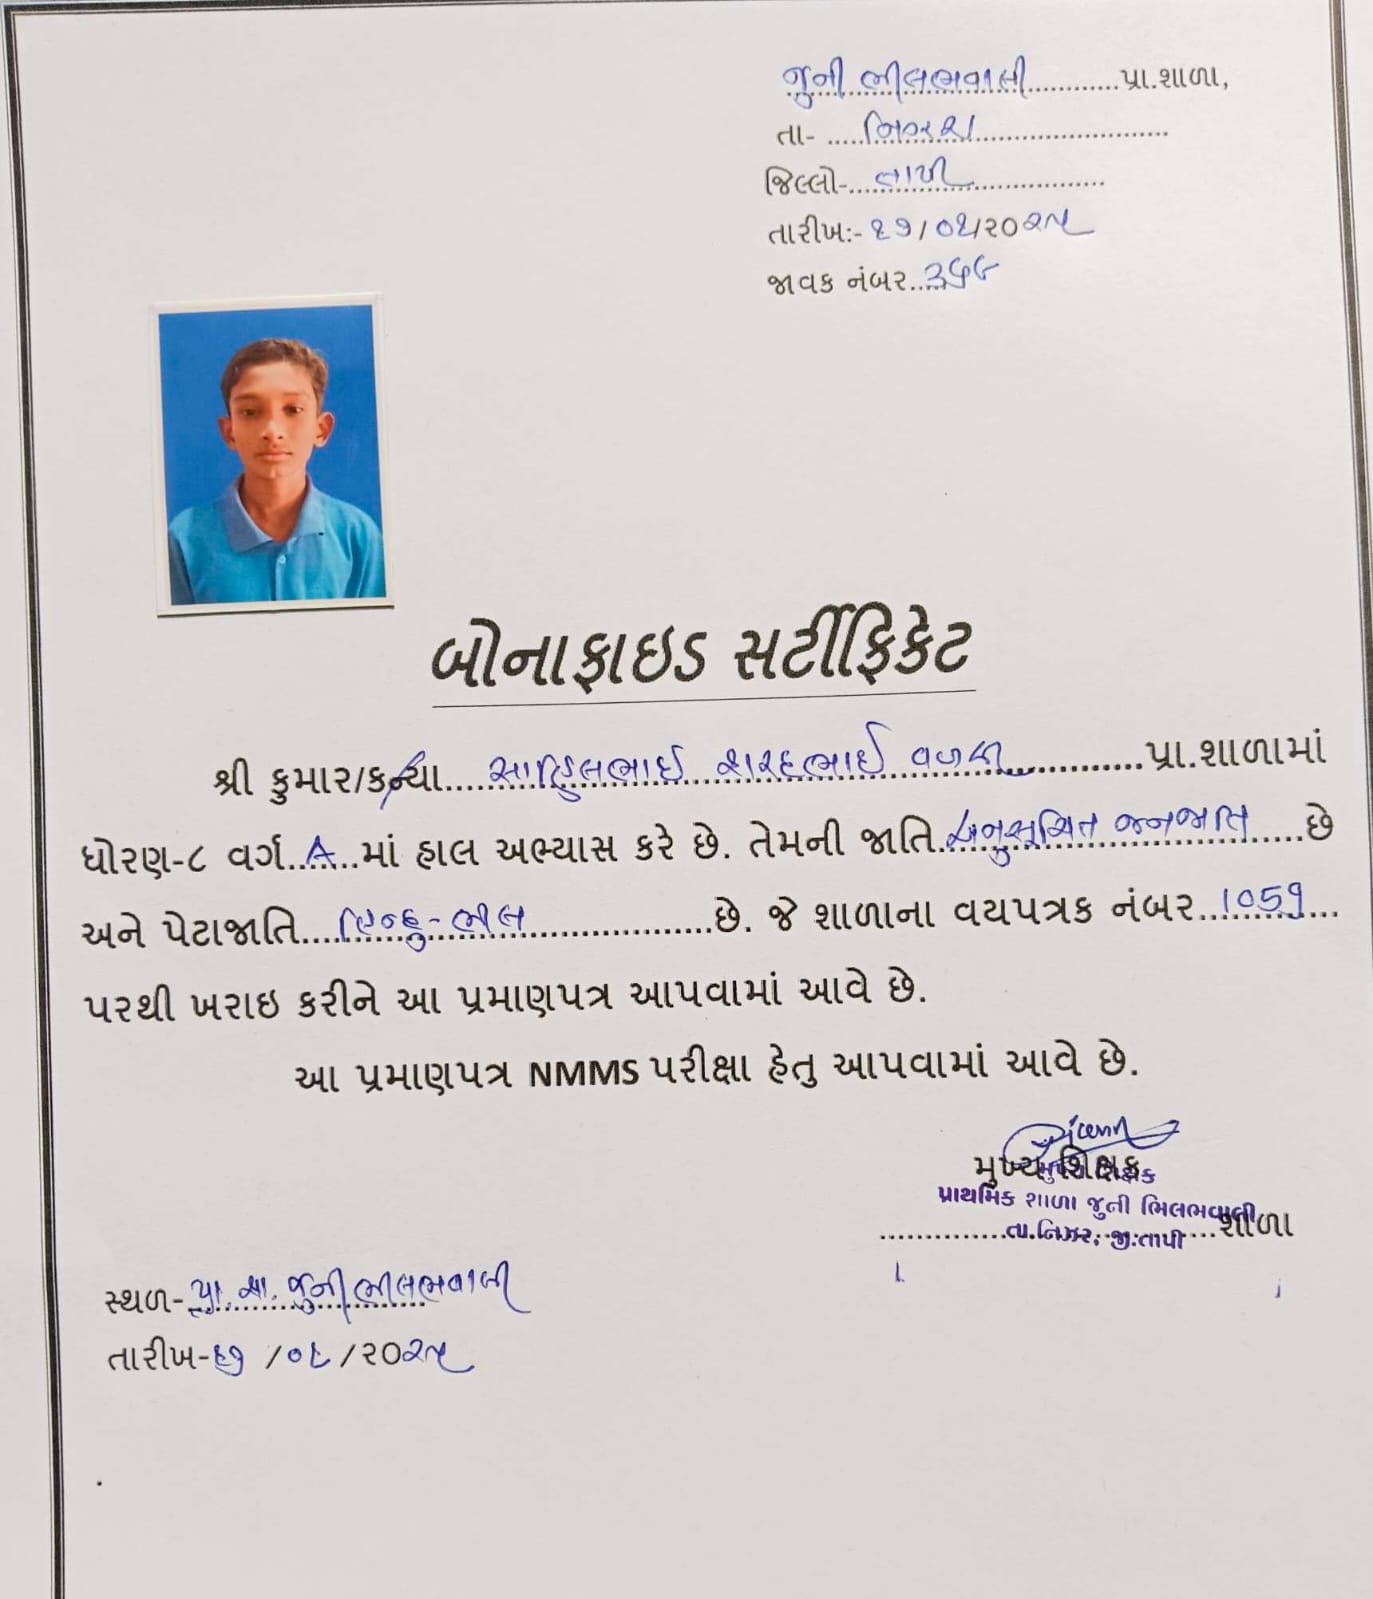 જુની ભીલભવાલી પ્રા.શાળા,
તા- નિઝર
જિલ્લો- તાપી
તારીખ:- ૨૭/૦૧/૨૦૨૫
જાવક નંબર..
બોનાફાઇડ સર્ટીફિકેટ
શ્રી કુમાર/કન્યા સાહિલભાઈ શરદભાઈ વળવી પ્રા.શાળામાં
ધોરણ-૮ વર્ગ A માં હાલ અભ્યાસ કરે છે. તેમની જાતિ અનુસૂચિત જનજાતિ છે
અને પેટાજાતિ હિન્દુ-ભીલ છે. જે શાળાના વયપત્રક નંબર
પરથી ખરાઇ કરીને આ પ્રમાણપત્ર આપવામાં આવે છે.
આ પ્રમાણપત્ર NMMS પરીક્ષા હેતુ આપવામાં આવે છે.
મુખ્ય શિક્ષક
પ્રાથમિક શાળા જુની ભિલભવાલી
તા.નિઝર, જી.તાપી
શાળા
સ્થળ- પ્રા.શા. જુની ભીલભવાલી
તારીખ-